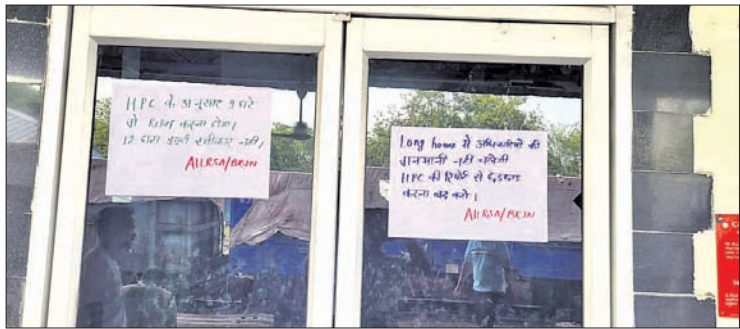 HPC के अनुसार 9 घंटे
में Relief करना होगा।
12 घंटा ड्यूटी स्वीकार नहीं।
AILRSA/BRJN
Long hours में अधिकारियों की
मनमानी नहीं चलेगी
HPC की रिपोर्ट से
करना बंद करो।
AILRSA/BRJN